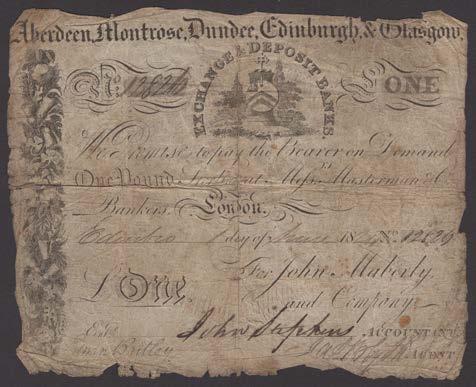 Aberdeen, Montrose, Dundee, Edinburgh, & Glasgow.
EXCHANGE & DEPOSIT BANKS
No. £ONE
We Promise to pay the Bearer on Demand
One Pound Sterling at Messrs. Masterman & Co
Bankers, London.
day of 18 No.
For John Maberly
£ One and Company
John Stephens ACCOUNTANT
Entd. AGENT